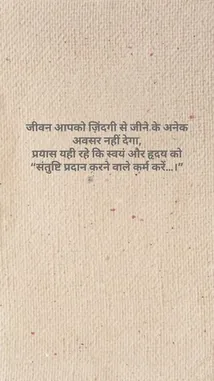 जीवन आपको ज़िंदगी से जीने के अनेक
अवसर नहीं देगा,
प्रयास यही रहे कि स्वयं और हृदय को
“संतुष्टि प्रदान करने वाले कर्म करें...।”